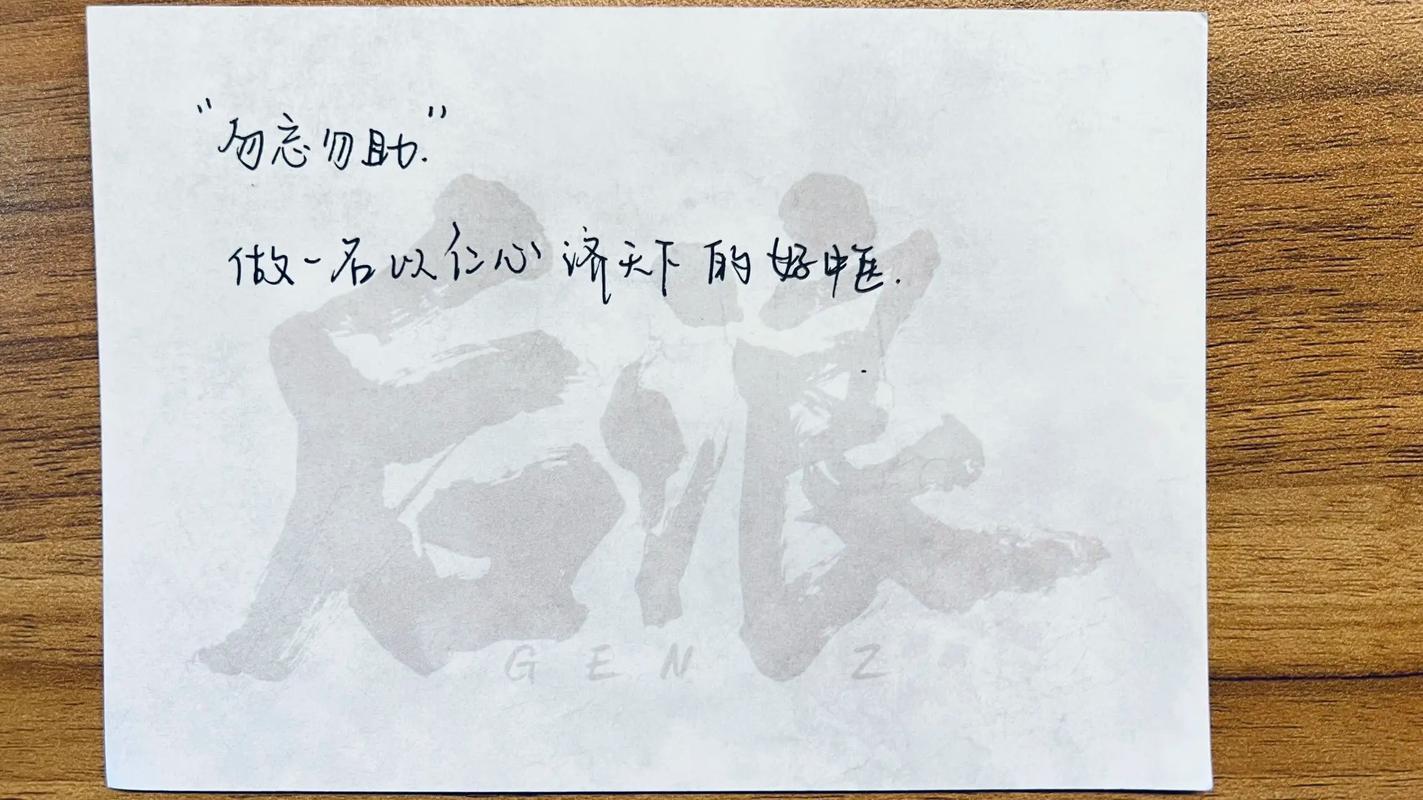 “勿忘勿助.”
做一名以仁心济天下的好中医.
后浪
GEN Z